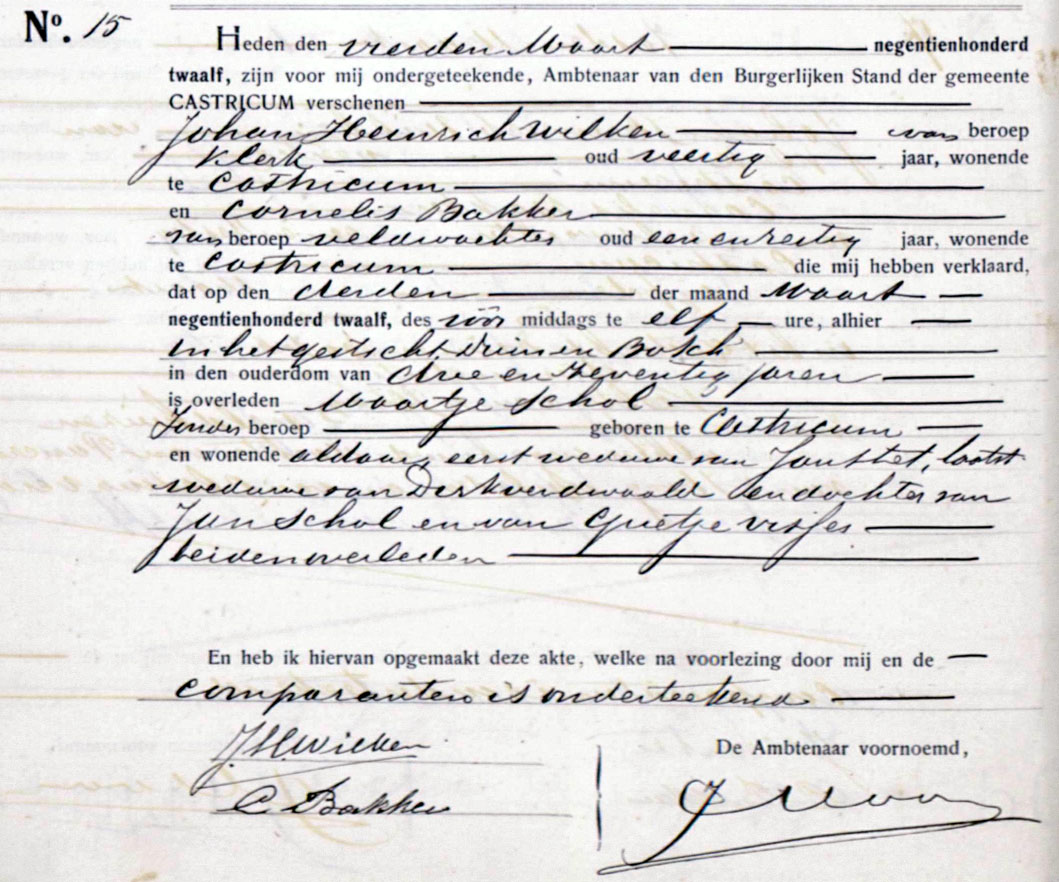 Nº. 15
Heden den vierden Maart negentienhonderd
twaalf, zijn voor mij ondergeteekende, Ambtenaar van den Burgerlijken Stand der gemeente
CASTRICUM verschenen
Johan Heinrich Wilken van beroep
Klerk oud veertig jaar, wonende
te Castricum
en Cornelis Bakker
van beroep veldwachter oud een en zestig jaar, wonende
te Castricum die mij hebben verklaard,
dat op den derden der maand Maart
negentienhonderd twaalf, des vóór middags te elf ure, alhier
in het gesticht Duin en Bosch
in den ouderdom van drie en zeventig jaren
is overleden Maartje Schol
zonder beroep geboren te Castricum
en wonende aldaar, eerst weduwe van Jan Stet, laatst
weduwe van Derk verdwaald en dochter van
Jan Schol en van Grietje visjes
beiden overleden
En heb ik hiervan opgemaakt deze akte, welke na voorlezing door mij en de
comparanten is onderteekend
J.H. Wilken
C. Bakker
De Ambtenaar voornoemd,
J Mooij